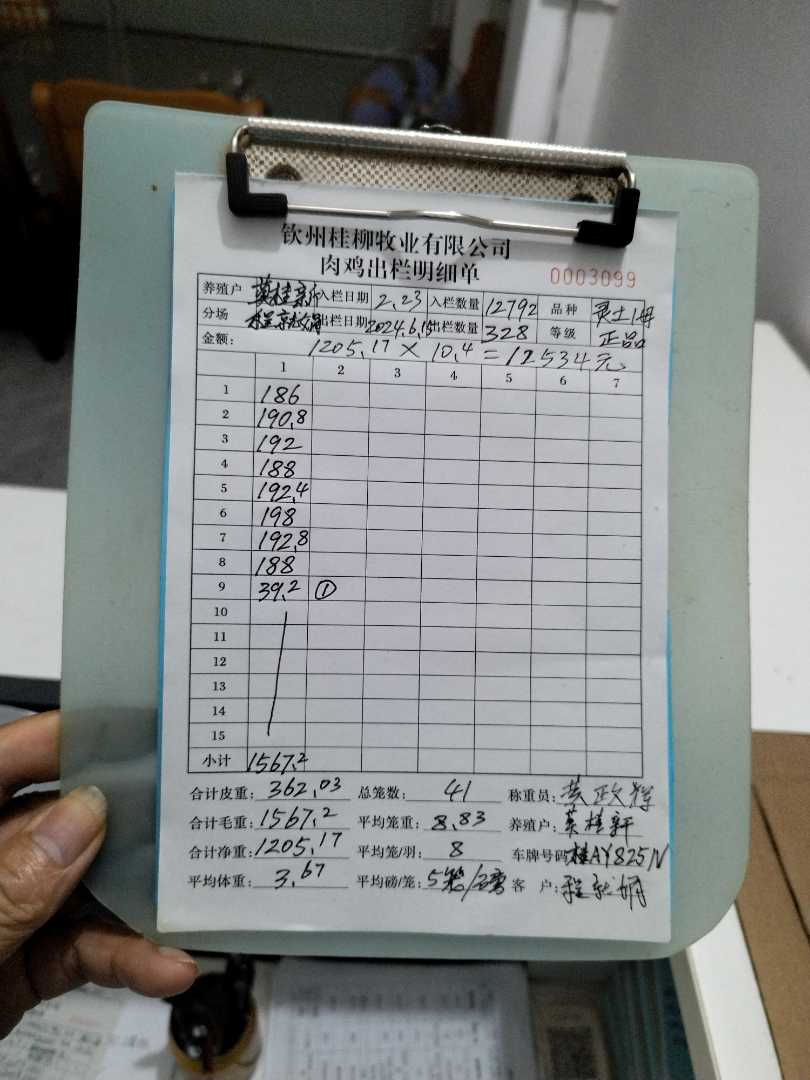 钦州桂柳牧业有限公司
肉鸡出栏明细单
0003099
养殖户 黄桂新 入栏日期 2.23 入栏数量 12792 品种 灵士1号
分场 程家娟 出栏日期 2024.6.15 出栏数量 328 等级 正品
金额: 1205.17 × 10.4 = 12534元
1 2 3 4 5 6 7
1 186
2 190.8
3 192
4 188
5 192.4
6 198
7 192.8
8 188
9 39.2 ①
10
11
12
13
14
15
小计 1567.2
合计皮重: 362.03 总笼数: 41 称重员: 黄政辉
合计毛重: 1567.2 平均笼重: 8.83 养殖户: 黄桂新
合计净重: 1205.17 平均笼/羽: 8 车牌号码: 桂AY825N
平均体重: 3.67 平均磅/笼: 5笼/磅 客 户: